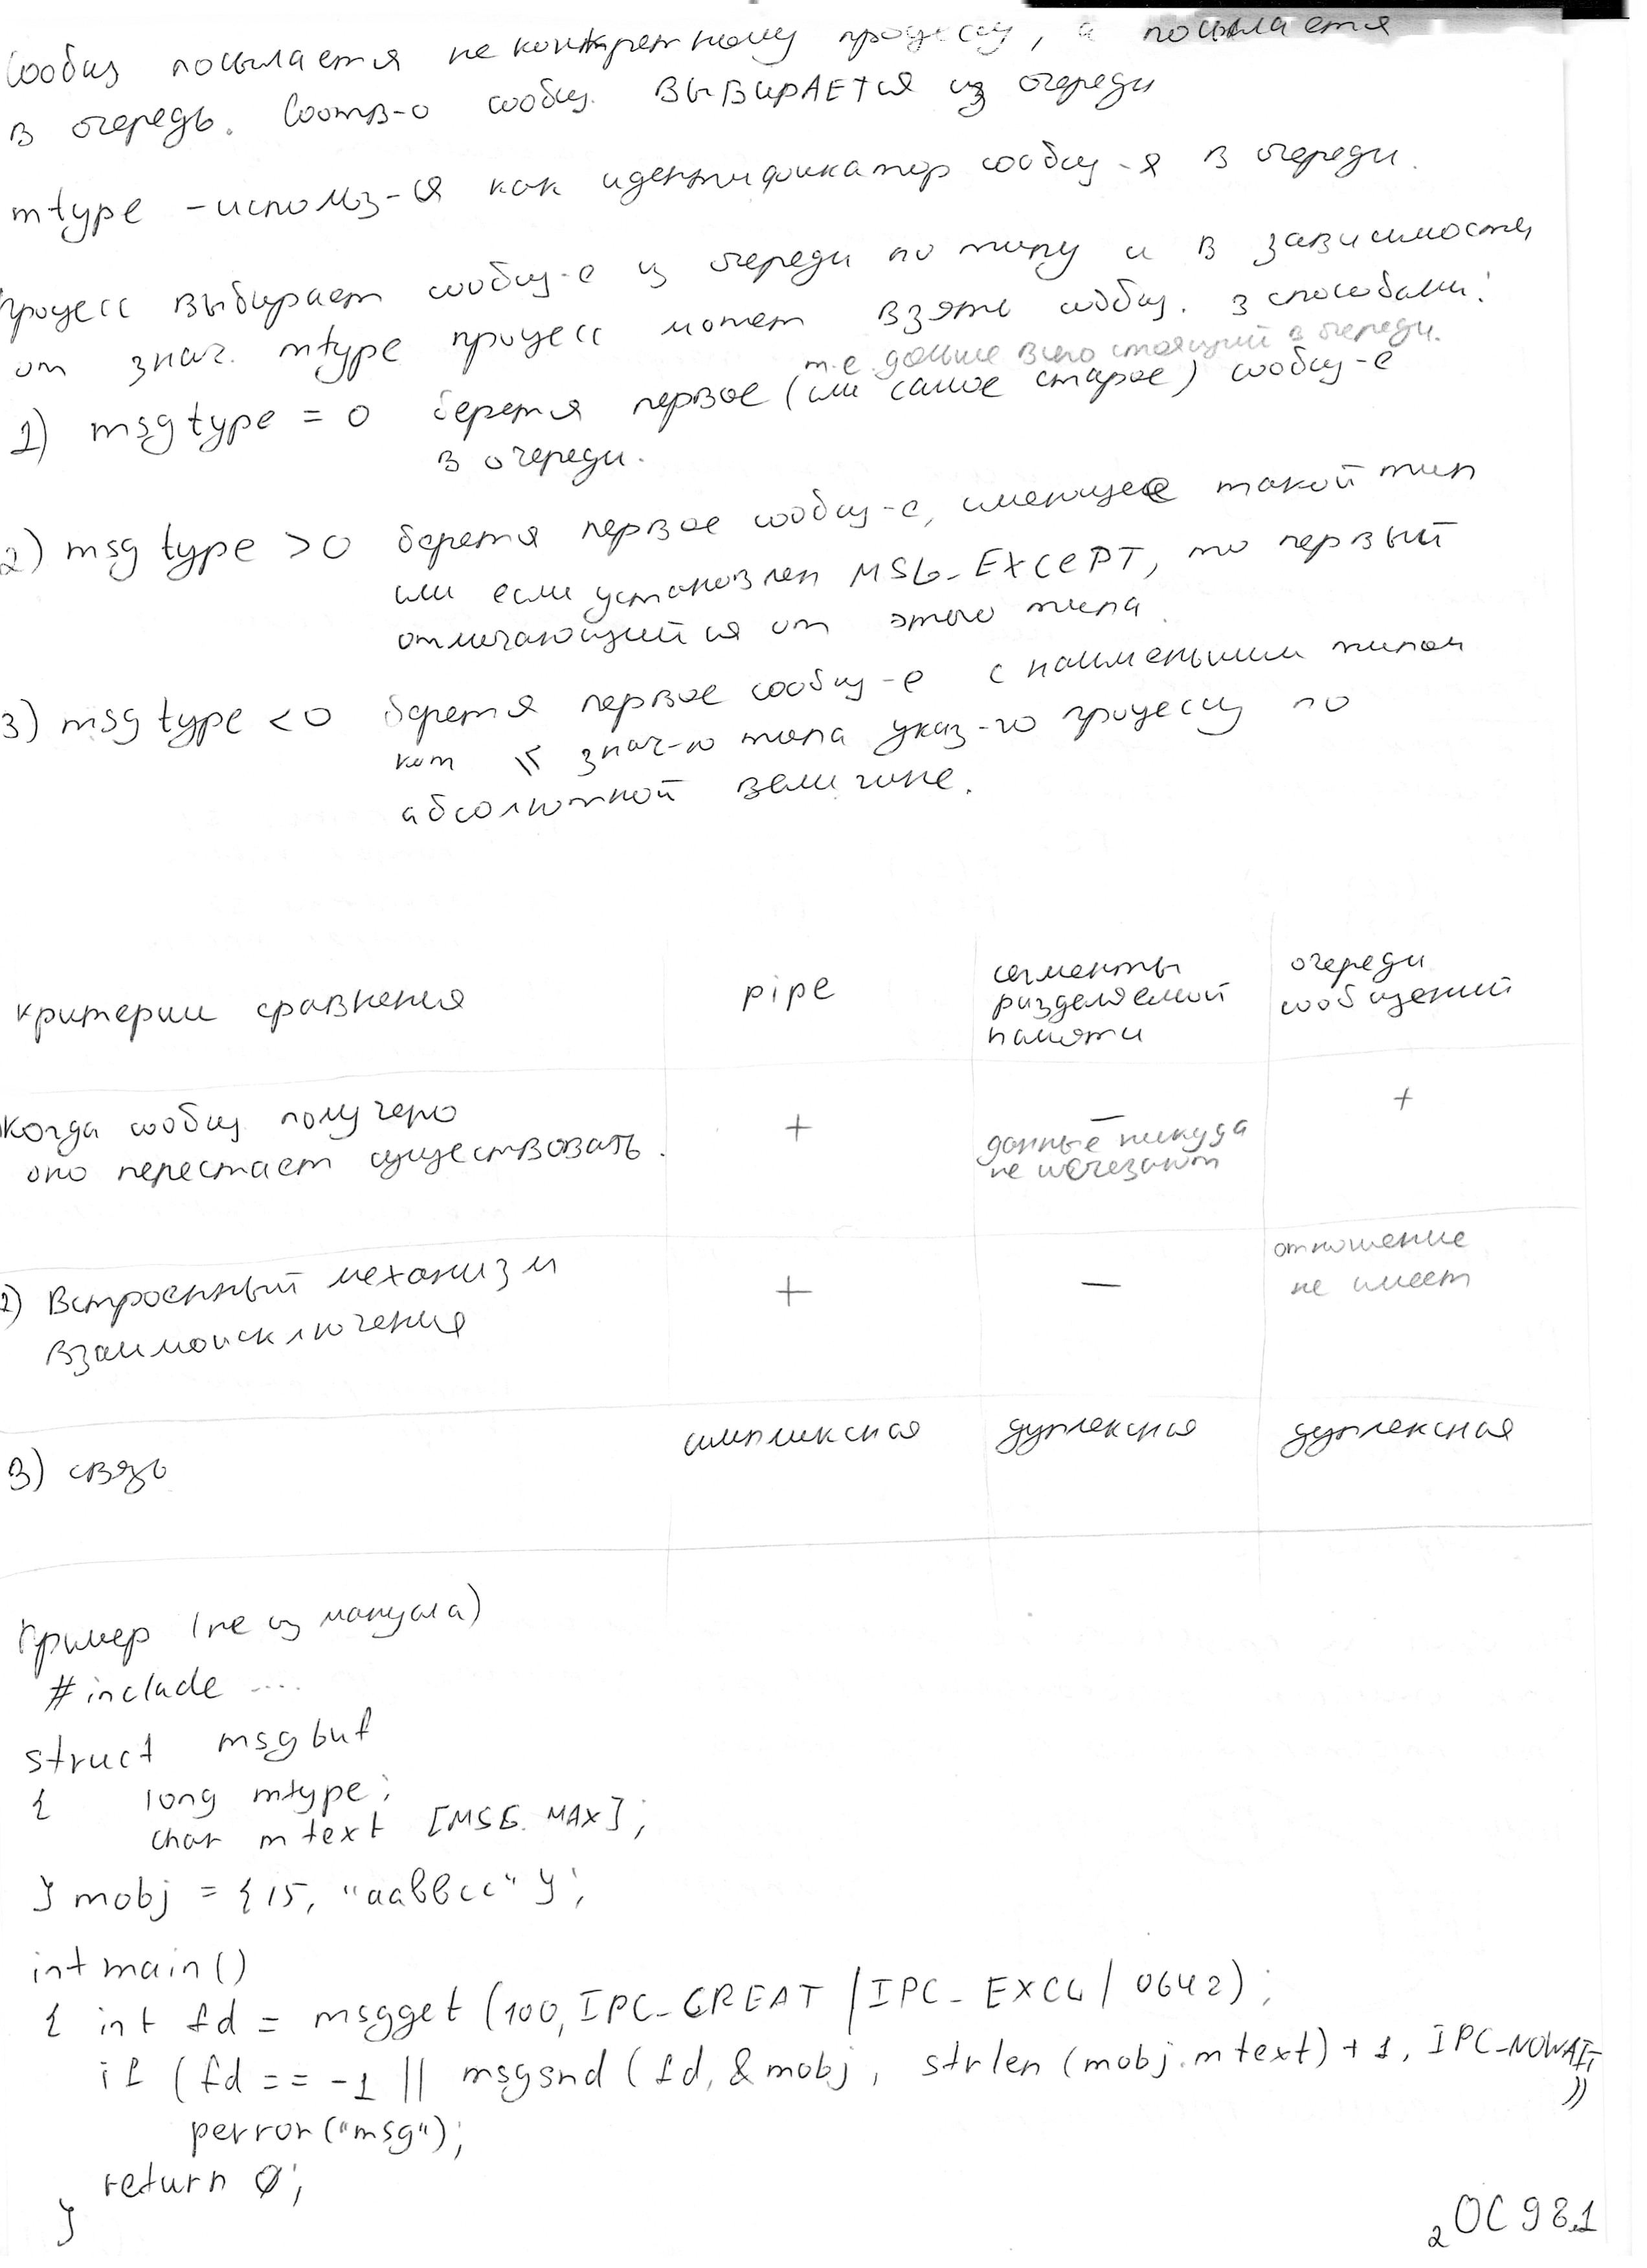 Сообщ посылается не конкретному процессу, а посылается
в очередь. Соотв-о сообщ. ВЫБИРАЕТСЯ из очереди
mtype - использ-ся как идентификатор сообщ-я в очереди.
процесс выбирает сообщ-е из очереди по типу и в зависимости
от знач. mtype процесс может взять сообщ. 3 способами:
т.е. дольше всего стоящий в очереди.
1) msgtype = 0 берется первое (или самое старое) сообщ-е
в очереди.
2) msgtype >0 берется первое сообщ-е, имеющее такой тип
или если установлен MSG_EXCEPT, то первый
отличающийся от этого типа.
3) msgtype <0 берется первое сообщ-е с наименьшим типом
кот ⩽ знач-ю типа указ-го процессу по
абсолютной величине.
критерии сравнения pipe сегменты разделяемой памяти очереди сообщений
когда сообщ получено + — +
оно перестает существовать. данные никуда не исчезают
2) Встроенный механизм + — отношение
взаимоисключения не имеет
3) связь симплексная дуплексная дуплексная
Пример (не из мануала)
#include ....
struct msgbuf
{ long mtype;
char mtext [MSG_MAX];
} mobj = {15, "aabbcc"};
int main()
{ int fd = msgget (100, IPC_CREAT | IPC_EXCL | 0642);
if (fd == -1 || msgsnd (fd, &mobj, strlen (mobj.mtext) + 1, IPC_NOWAIT
))
perror("msg");
return 0;
}
2 ОС 98.1